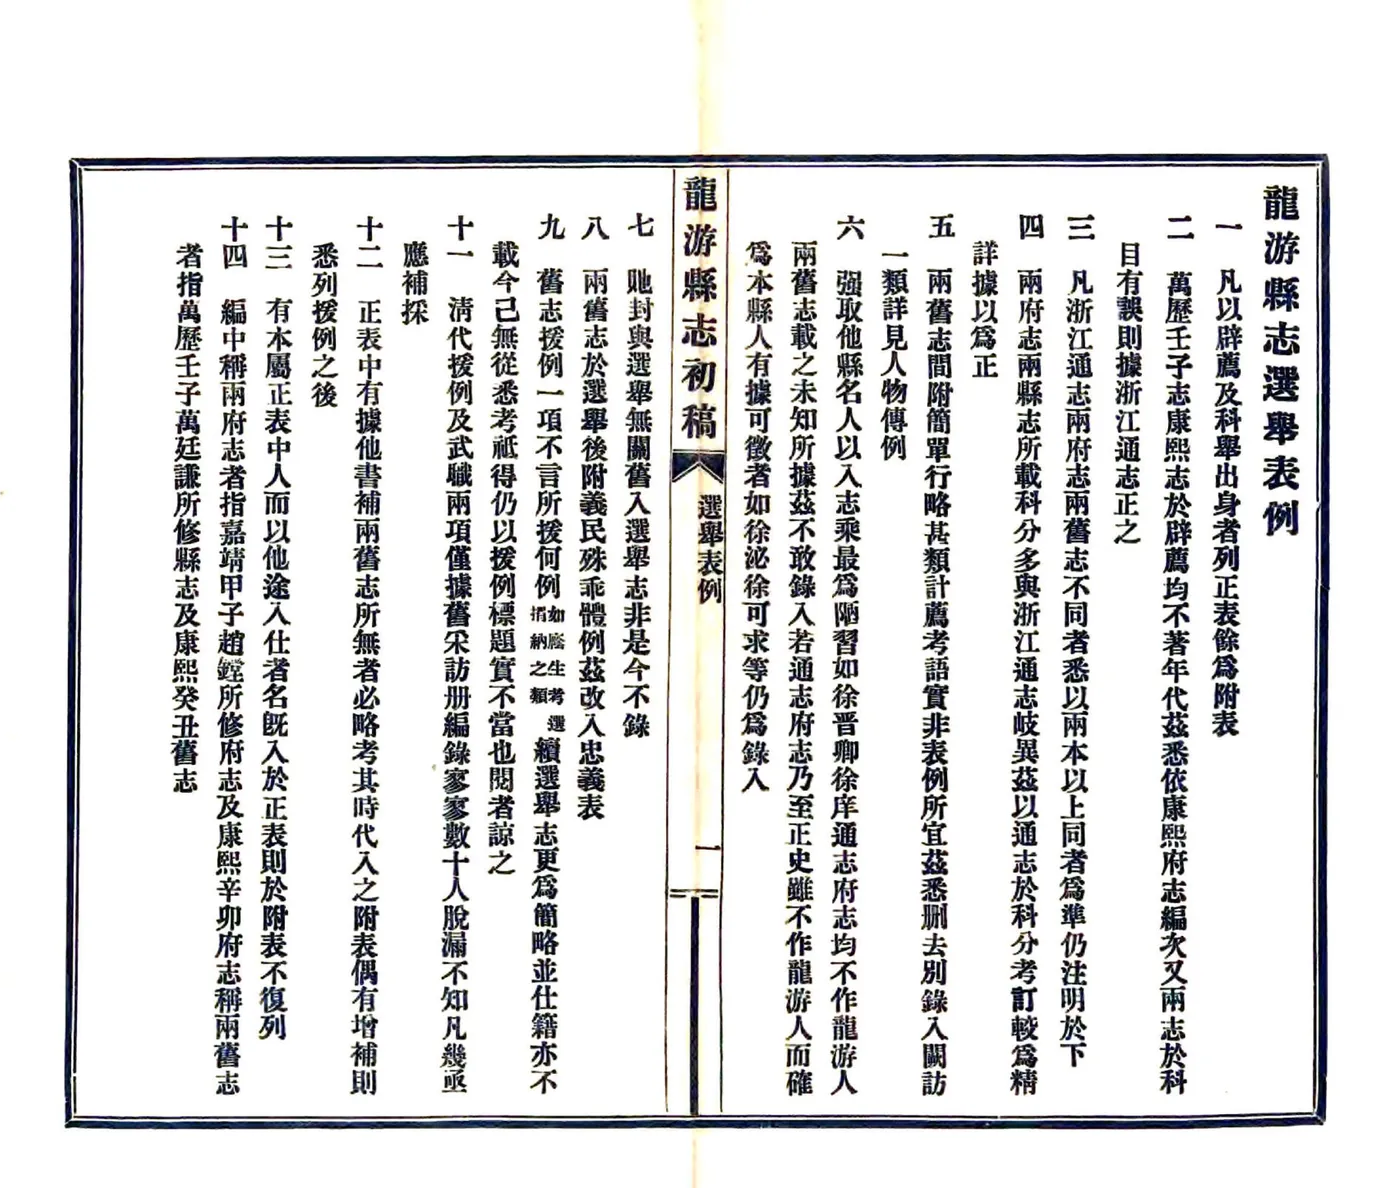 龍游縣志選舉表例
一　凡以辟薦及科舉出身者列正表餘爲附表
二　萬歷壬子志康熙志於辟薦均不著年代茲悉依康熙府志編次又兩志於科
目有誤則據浙江通志正之
三　凡浙江通志兩府志兩舊志不同者悉以兩本以上同者爲準仍注明於下
四　兩府志兩縣志所載科分多與浙江通志岐異茲以通志於科分考訂較爲精
詳據以爲正
五　兩舊志間附簡單行略甚類計薦考語實非表例所宜茲悉删去別錄入闕訪
一類詳見人物傳例
六　强取他縣名人以入志乘最爲陋習如徐晋卿徐庠通志府志均不作龍游人
兩舊志載之未知所據茲不敢錄入若通志府志乃至正史雖不作龍游人而確
爲本縣人有據可徵者如徐泌徐可求等仍爲錄入
龍游縣志初稿
選舉表例
一
七　貤封與選舉無關舊入選舉志非是今不錄
八　兩舊志於選舉後附義民殊乖體例茲改入忠義表
九　舊志援例一項不言所援何例如廕生考選捐納之類續選舉志更爲簡略並仕籍亦不
載今己無從悉考祇得仍以援例標題實不當也閱者諒之
十一　清代援例及武職兩項僅據舊采訪册編錄寥寥數十人脫漏不知凡幾亟
應補採
十二　正表中有據他書補兩舊志所無者必略考其時代入之附表偶有增補則
悉列援例之後
十三　有本屬正表中人而以他途入仕者名既入於正表則於附表不復列
十四　編中稱兩府志者指嘉靖甲子趙鏜所修府志及康熙辛卯府志稱兩舊志
者指萬歷壬子萬廷謙所修縣志及康熙癸丑舊志